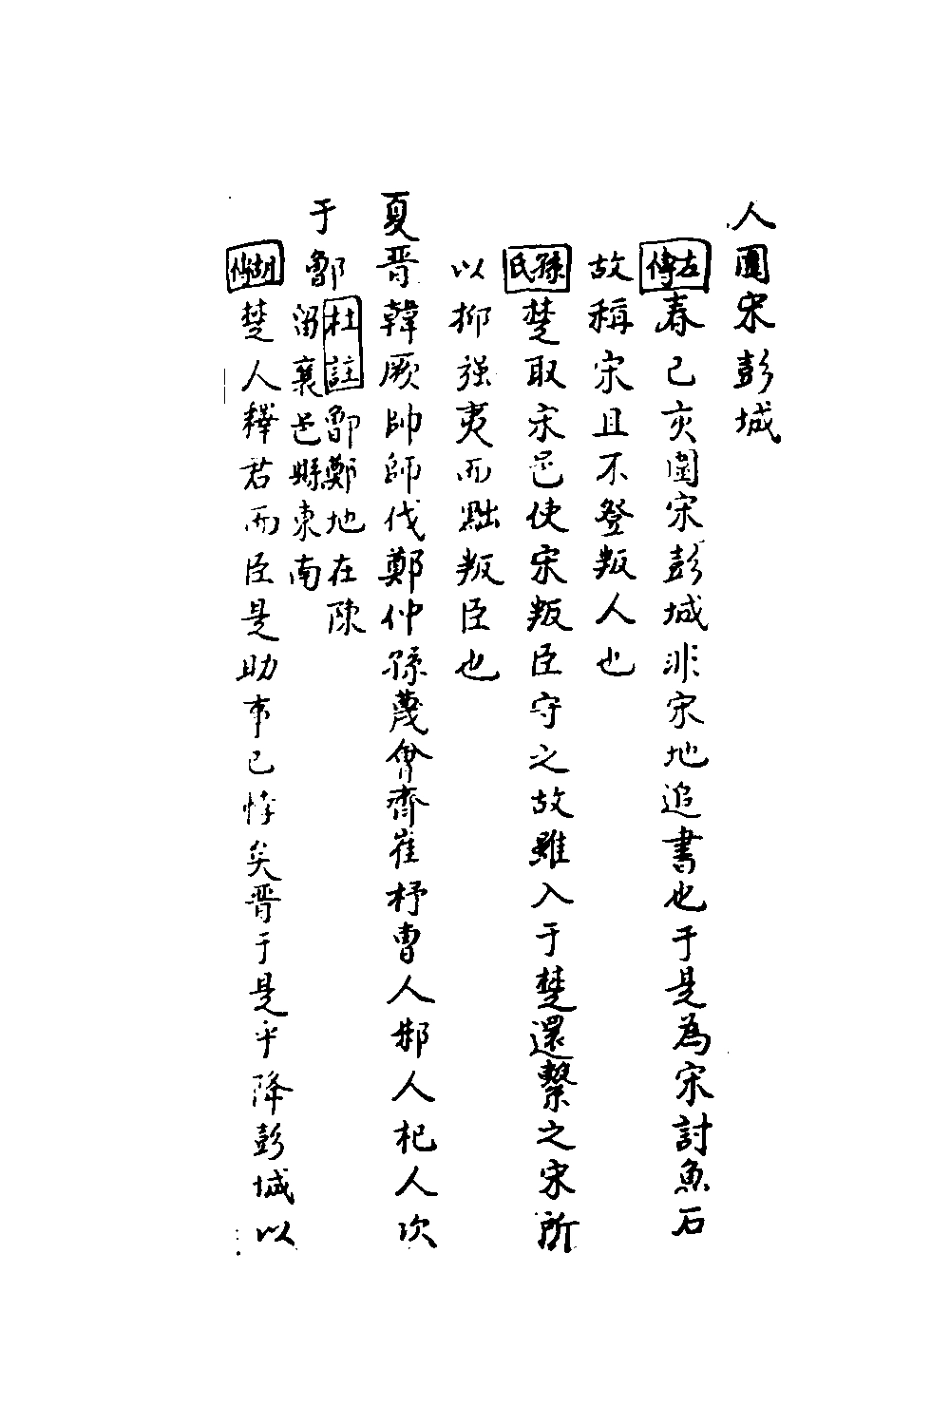 人圍宋彭城
左傳春己亥圍宋彭城非宋地追書也于是為宋討魚石
故稱宋且不登叛人也
孫氏楚取宋邑使宋叛臣守之故雖入于楚還繫之宋所
以抑强夷而黜叛臣也
夏晋韓厥帥師伐鄭仲孫蔑會齊崔杼曹人邾人杞人次
于鄫
杜註鄫鄭地在陳
留襄邑縣東南
胡傳楚人釋君而臣是助事已悖矣晋于是乎降彭城以